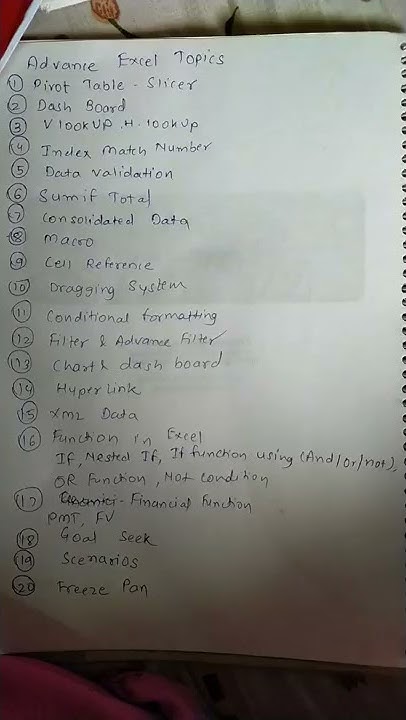 Advance Excel Topics
① Pivot Table - Slicer
② Dash Board
③ Vlookup .H.lookup
④ Index Match Number
⑤ Data Validation
⑥ Sumif Total
⑦ Consolidated Data
⑧ Macro
⑨ Cell Reference
⑩ Dragging System
⑪ Conditional formatting
⑫ Filter & Advance Filter
⑬ Chart & dash board
⑭ Hyper Link
⑮ XML Data
⑯ Function in Excel
If, Nested If, If function using (And/or/not),
OR Function, Not condition
⑰ - Financial Function
PMT, FV
⑱ Goal Seek
⑲ Scenarios
⑳ Freeze Pan